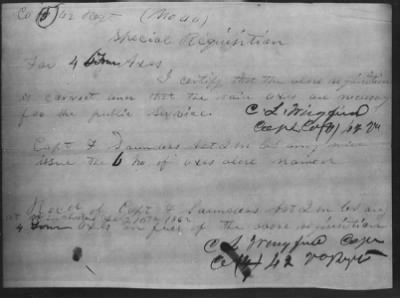 Co (F) 42 Regt (No 40)
Special Requisition
For 4 Four Axes
I certify that the above requisition
is correct and that the said axes are necessary
for the public service. C L Wingfield
Capt Co (F) 42 Va
Capt F Saunders
issue the No of axes above named
Recd of Capt F Saunders
4 Four axes in full of the above requisition
C L Wingfield Capt
Co (F) 42 Va Regt